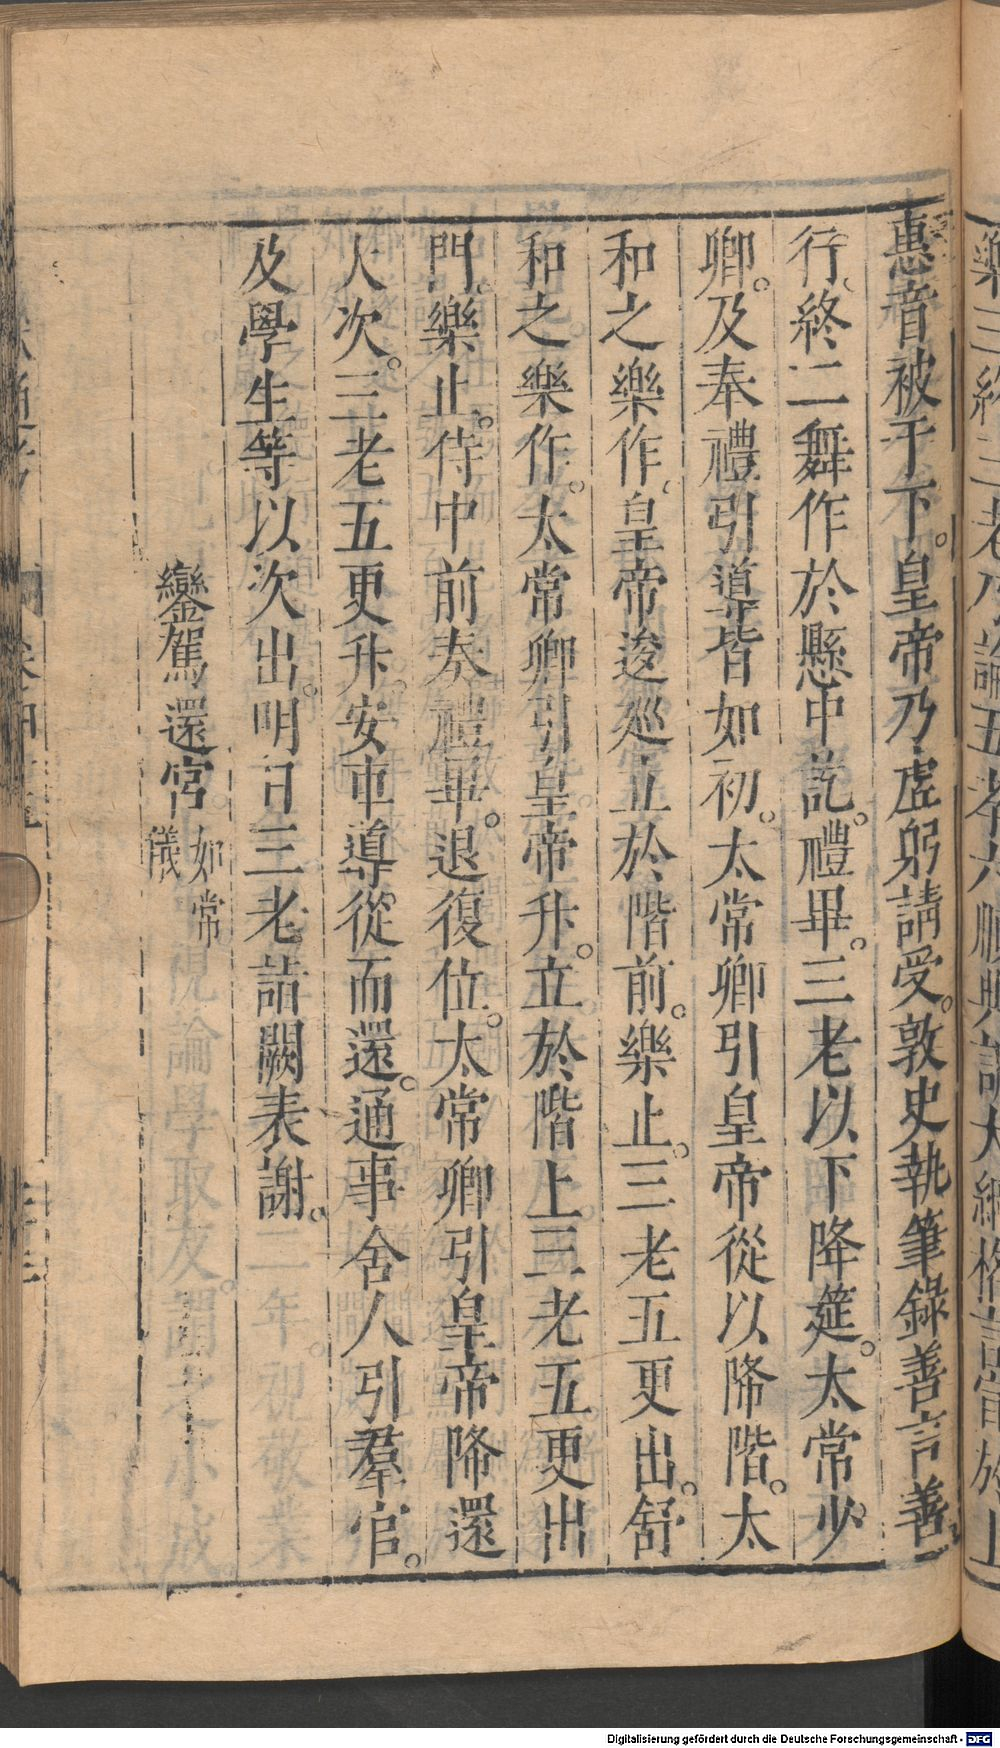 惠音被于下。皇帝乃虚躬請受。敦史執筆錄善言善
行。終二舞作於懸中訖。禮畢。三老以下降筵。太常少
卿。及奉禮引導皆如初。太常卿引皇帝從以降階。太
和之樂作。皇帝逡巡立於階前。樂止。三老五更出。舒
和之樂作。太常卿引皇帝升。立於階上三老五更出
門。樂止。侍中前奏禮畢。退復位。太常卿引皇帝降還
人次。三老五更升。安車導從而還。通事舍人引羣官。
及學生等以次出。明日三老詣闕表謝。
鑾駕還宮 如常儀
Digitalisierung gefördert durch die Deutsche Forschungsgemeinschaft - DFG